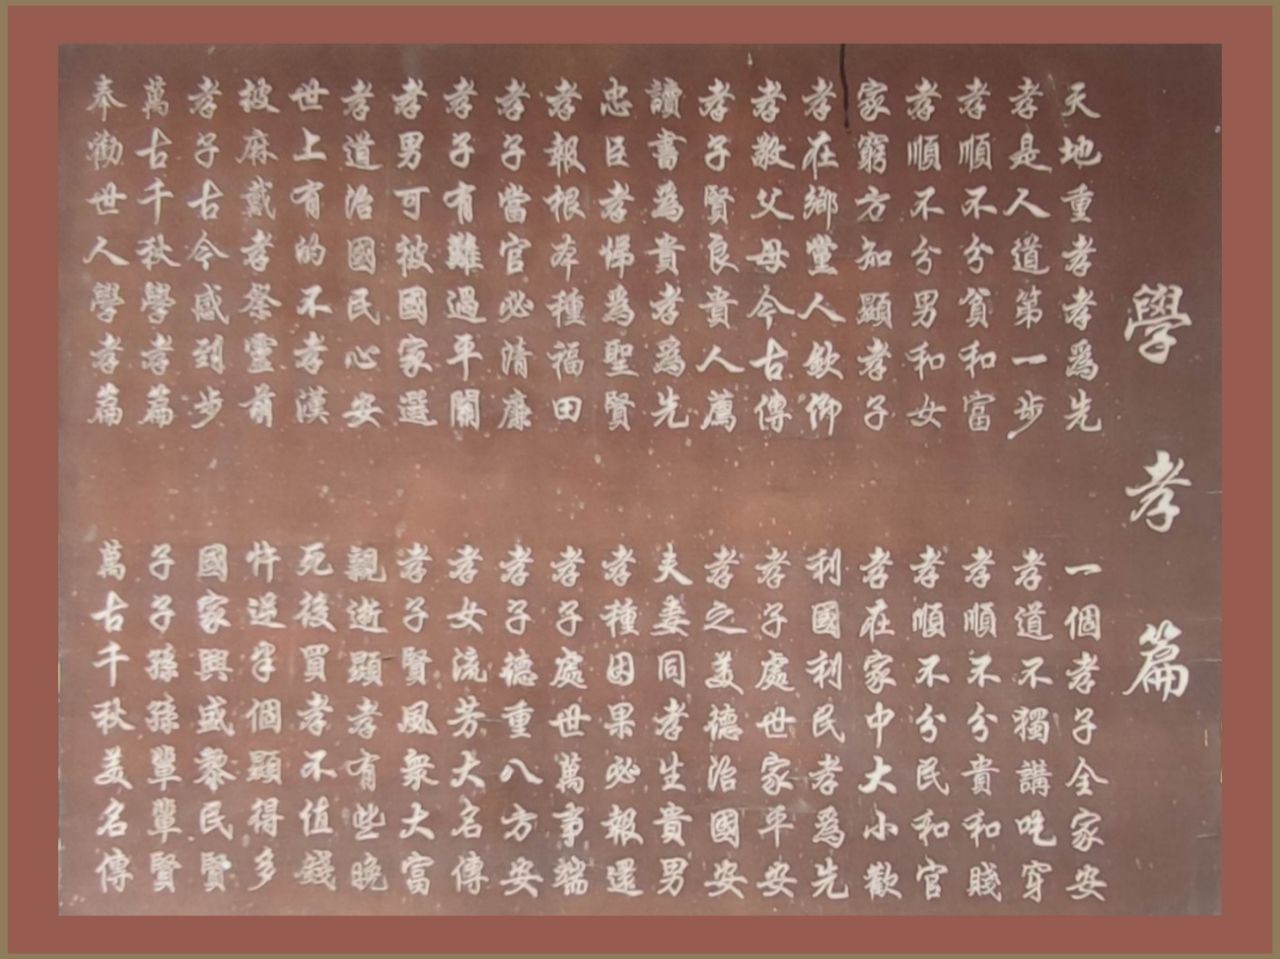 學孝篇
天地重孝孝爲先
一個孝子全家安
孝是人道第一步
孝道不獨講吃穿
孝順不分貧和富
孝順不分貴和賤
孝順不分男和女
孝順不分民和官
家窮方知顯孝子
孝在家中大小歡
孝在鄉黨人欽仰
利國利民孝爲先
孝敬父母今古傳
孝子處世家平安
孝子賢良貴人薦
孝之美德治國安
讀書為貴孝爲先
夫妻同孝生貴男
忠臣孝悌爲聖賢
孝種因果必報還
孝報根本種福田
孝子處世萬事端
孝子當官必清廉
孝子德重八方安
孝子有難過平關
孝女流芳大名傳
孝男可被國家選
孝子賢風衆大富
孝道治國民心安
親逝顯孝有些晚
世上有的不孝漢
死後買孝不值錢
被麻戴孝祭靈前
忤逆半個顯得多
孝子古今感到步
國家興盛黎民賢
萬古千秋學孝篇
子子孫孫輩輩賢
奉勸世人學孝篇
萬古千秋美名傳